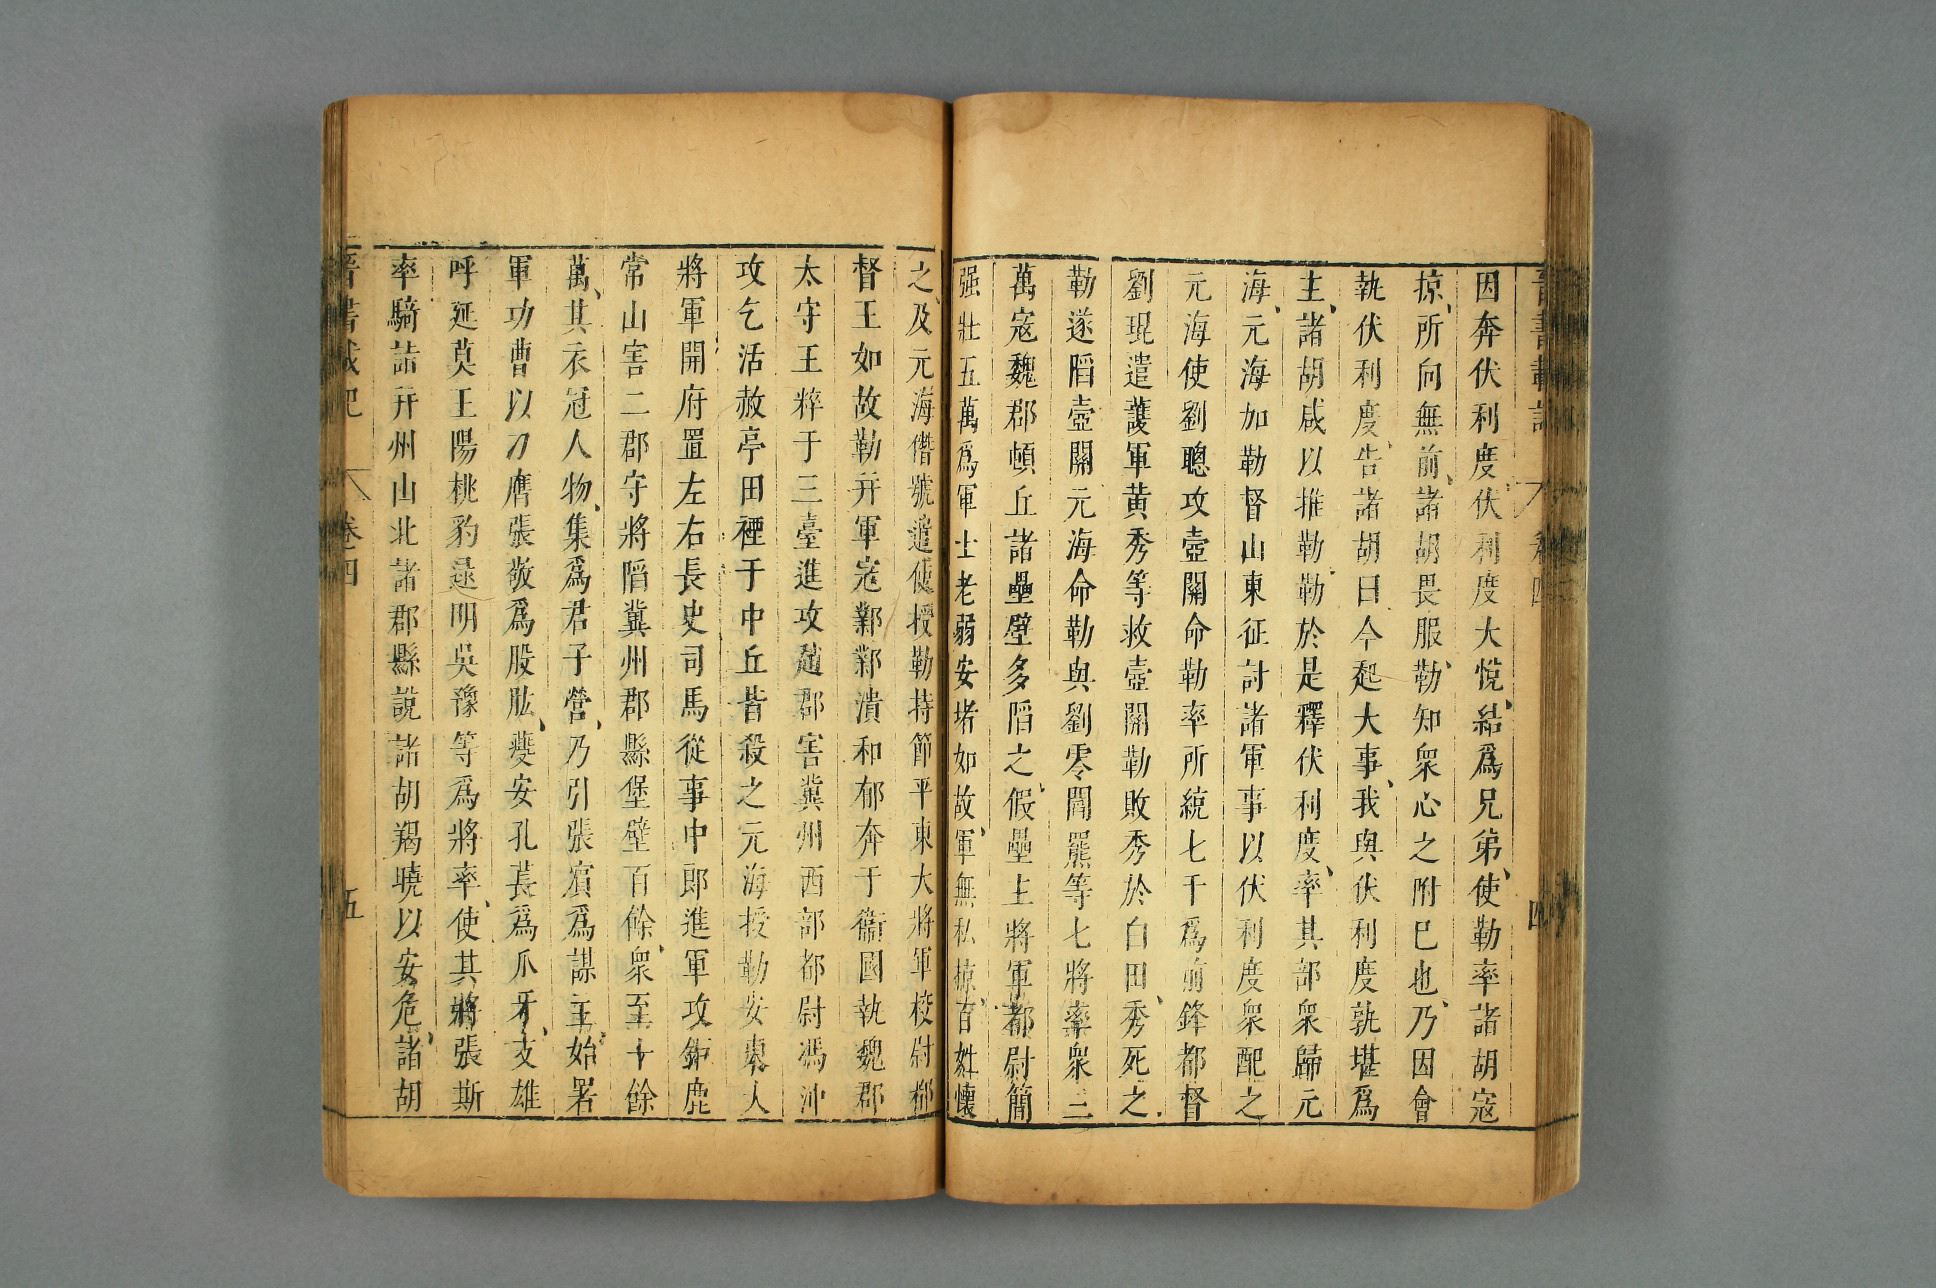 晉書載記 卷四 四
因奔伏利度伏利度大悅結爲兄弟使勒率諸胡寇
掠所向無前諸胡畏服勒知衆心之附巳也乃因會
執伏利度告諸胡曰今起大事我與伏利度孰堪爲
主諸胡咸以推勒勒於是釋伏利度率其部衆歸元
海元海加勒督山東征討諸軍事以伏利度衆配之
元海使劉聰攻壺關命勒率所統七千爲前鋒都督
劉琨遣護軍黃秀等救壺關勒敗秀於白田秀死之
勒遂陷壺關元海命勒與劉零閻羆等七將率衆三
萬寇魏郡頓丘諸壘壁多陷之假壘主將軍都尉簡
强壯五萬爲軍士老弱安堵如故軍無私掠百姓懷
之及元海僭號遣使授勒持節平東大將軍校尉都
督王如故勒幷軍寇鄴鄴潰和郁奔于衞國執魏郡
太守王粹于三臺進攻趙郡害冀州西部都尉馮沖
攻乞活赦亭田禋于中丘皆殺之元海授勒安東大
將軍開府置左右長史司馬從事中郎進軍攻鉅鹿
常山害二郡守將陷冀州郡縣堡壁百餘衆至十餘
萬其衣冠人物集爲君子營乃引張賓爲謀主始署
軍功曹以刀膺張敬爲股肱夔安孔萇爲爪牙支雄
呼延莫王陽桃豹逯明吳豫等爲將率使其將張斯
率騎詣幷州山北諸郡縣說諸胡羯曉以安危諸胡
晉書載記 卷四 五